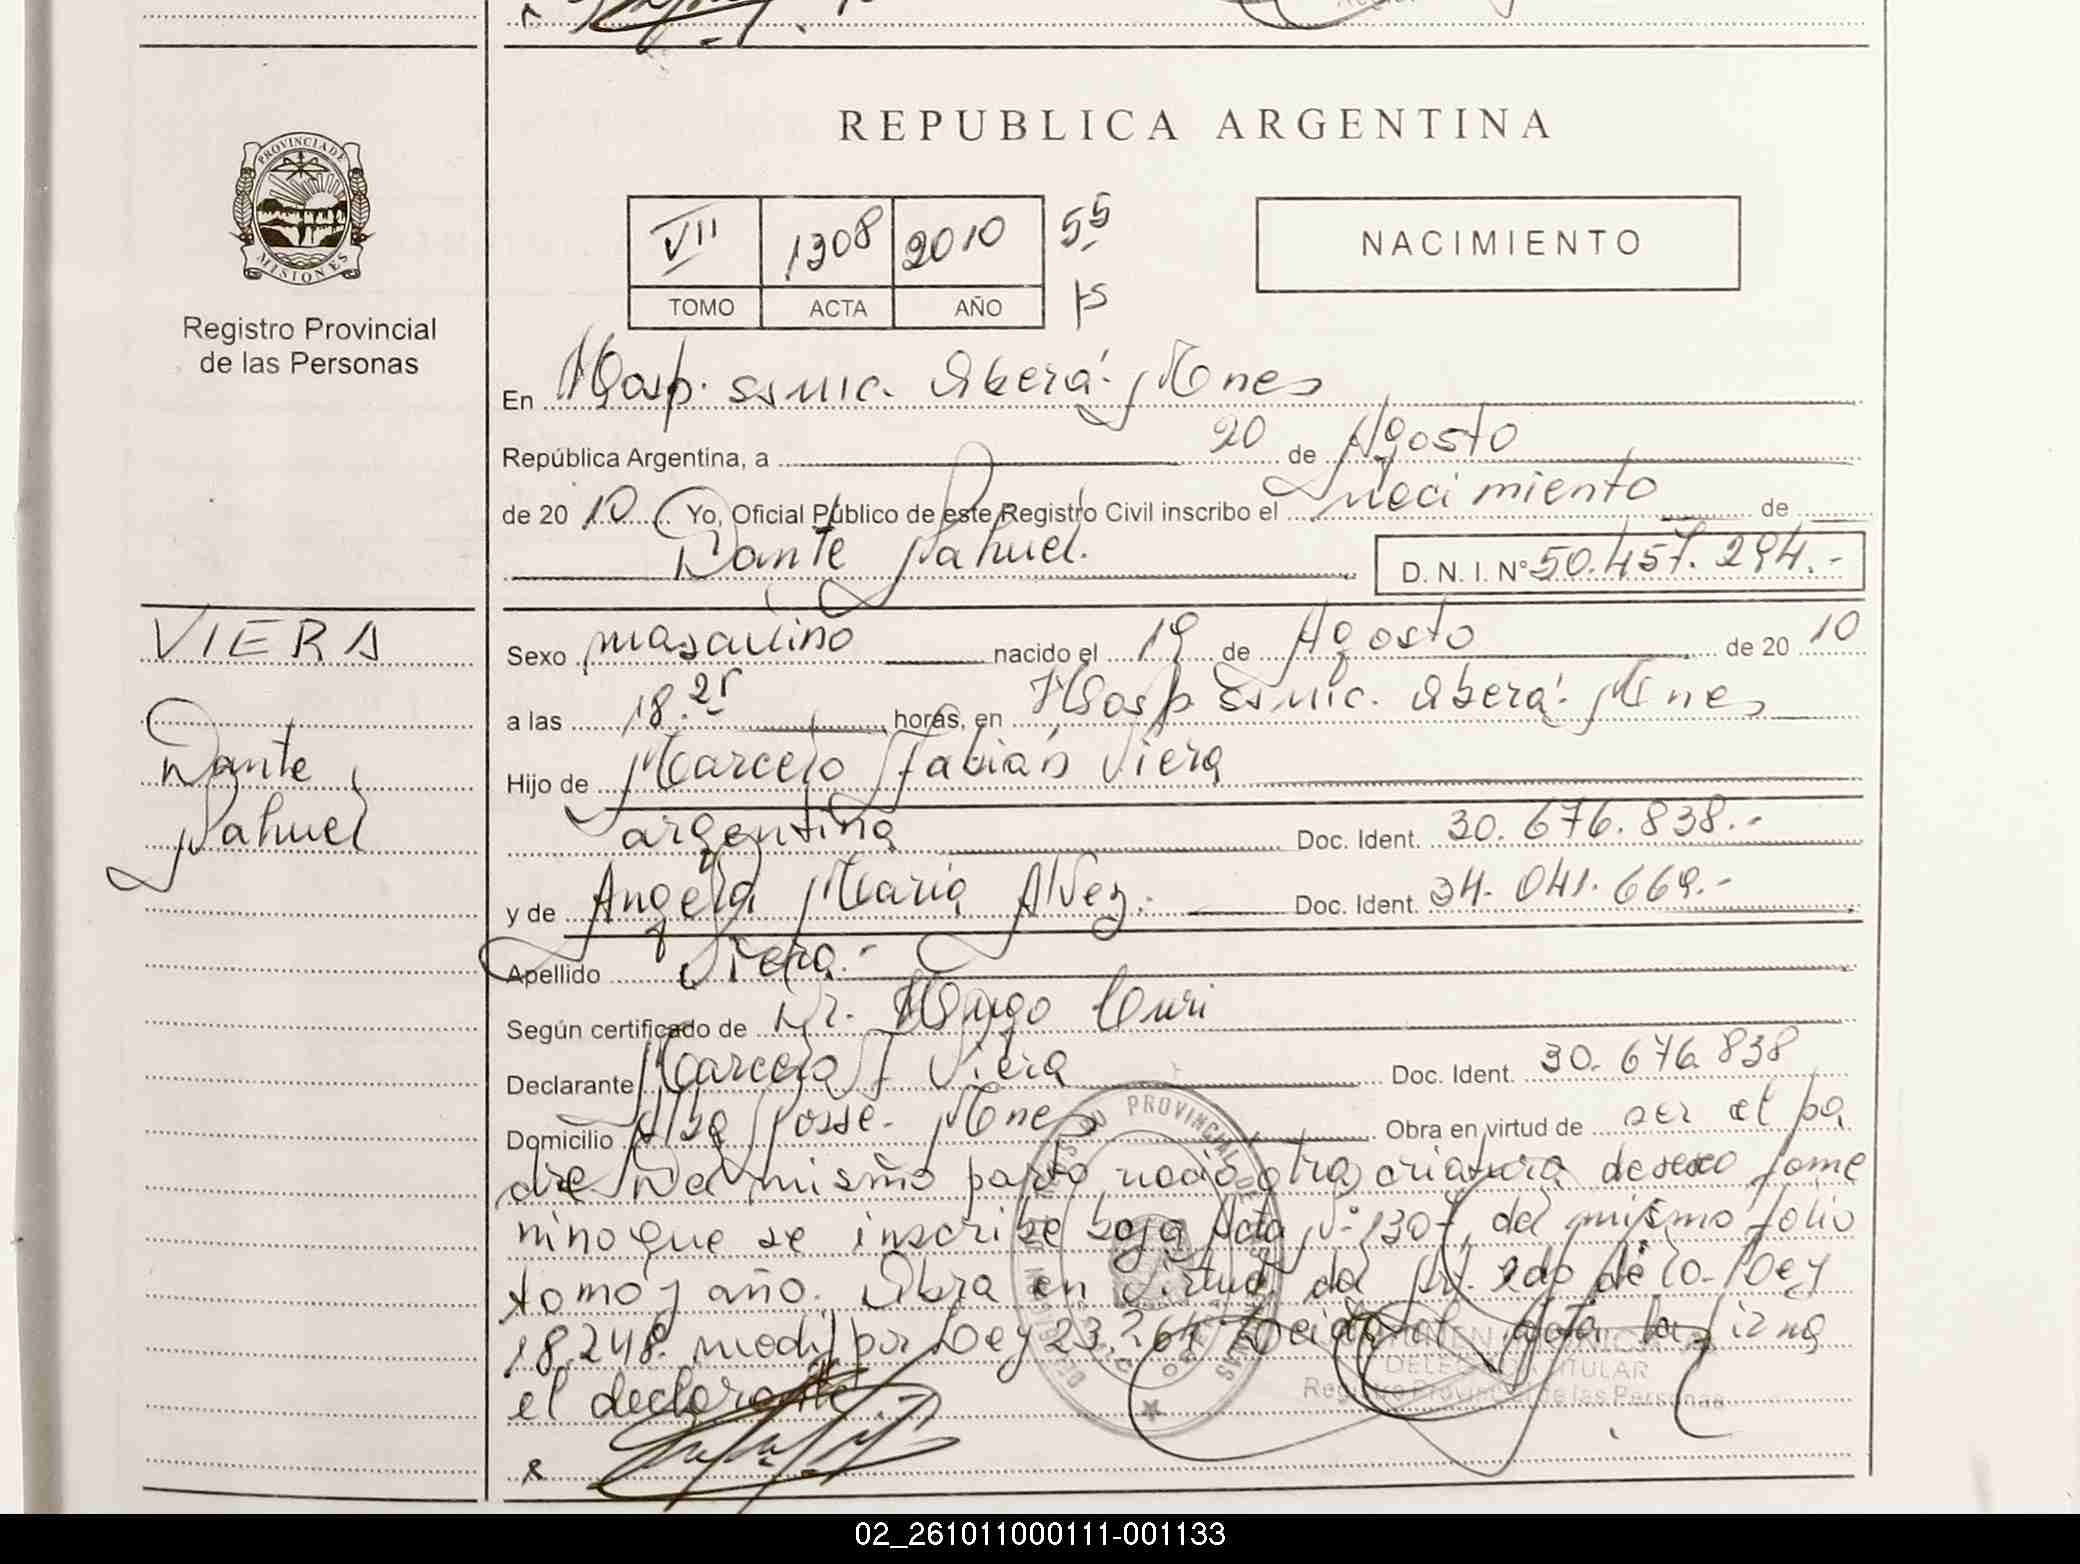 REPUBLICA ARGENTINA
PROVINCIA DE
MISIONES
Registro Provincial
de las Personas
VII 1308 2010 55
TOMO ACTA AÑO
NACIMIENTO
En Hosp. ssmic. Oberá. Mnes
República Argentina, a 20 de Agosto
de 2010 Yo, Oficial Público de este Registro Civil inscribo el nacimiento de
Dante Nahuel. D. N. I. Nº 50.457.294.-
VIERA
Dante
Nahuel
Sexo masculino nacido el 19 de Agosto de 2010
a las 18.25 horas, en Hosp ssmic. Oberá. Mnes
Hijo de Marcelo Fabián Viera
argentina Doc. Ident. 30.676.838.-
y de Angela Maria Alvez.- Doc. Ident. 34.041.669.-
Apellido Viera.-
Según certificado de Dr. Hugo
Declarante Marcelo F Viera Doc. Ident. 30.676.838
Domicilio Alba Posse. Mnes Obra en virtud de ser el pa
dre Del mismo parto nació otra criatura de sexo feme
nino que se inscribe bajo Acta Nº 1307, del mismo folio
tomo y año. Obra en virtud del Art. 2do de la Ley
18.248. modif por Ley 23.264 Leida el acta la firma
el declarante
DELEGADA TITULAR
Registro Provincial de las Personas
02_261011000111-001133